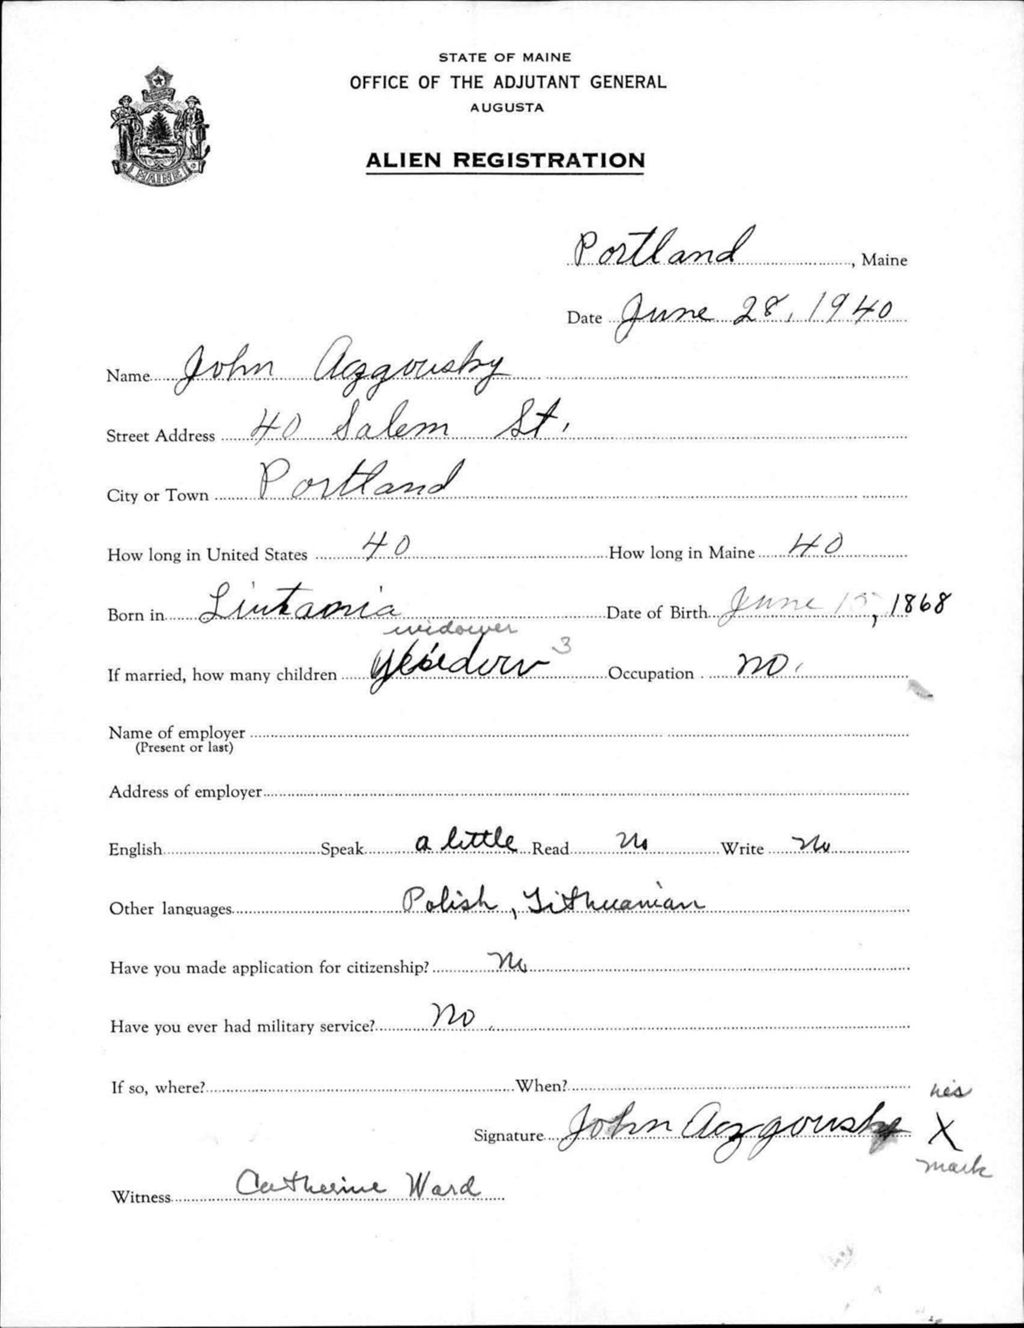 STATE OF MAINE
OFFICE OF THE ADJUTANT GENERAL
AUGUSTA
ALIEN REGISTRATION
MAINE
Portland, Maine
Date June 28, 1940
Name John Aczgousky
Street Address 40 Salem St.
City or Town Portland
How long in United States 40 How long in Maine 40
Born in Liutaania Date of Birth June 15, 1868
widower
If married, how many children 3 Occupation no.
Name of employer
(Present or last)
Address of employer
English Speak a little Read No Write No
Other languages Polish, Lithuanian
Have you made application for citizenship? No
Have you ever had military service? No
If so, where? When?
his
Signature John Aczgousky X
mark
Witness Catherine Ward